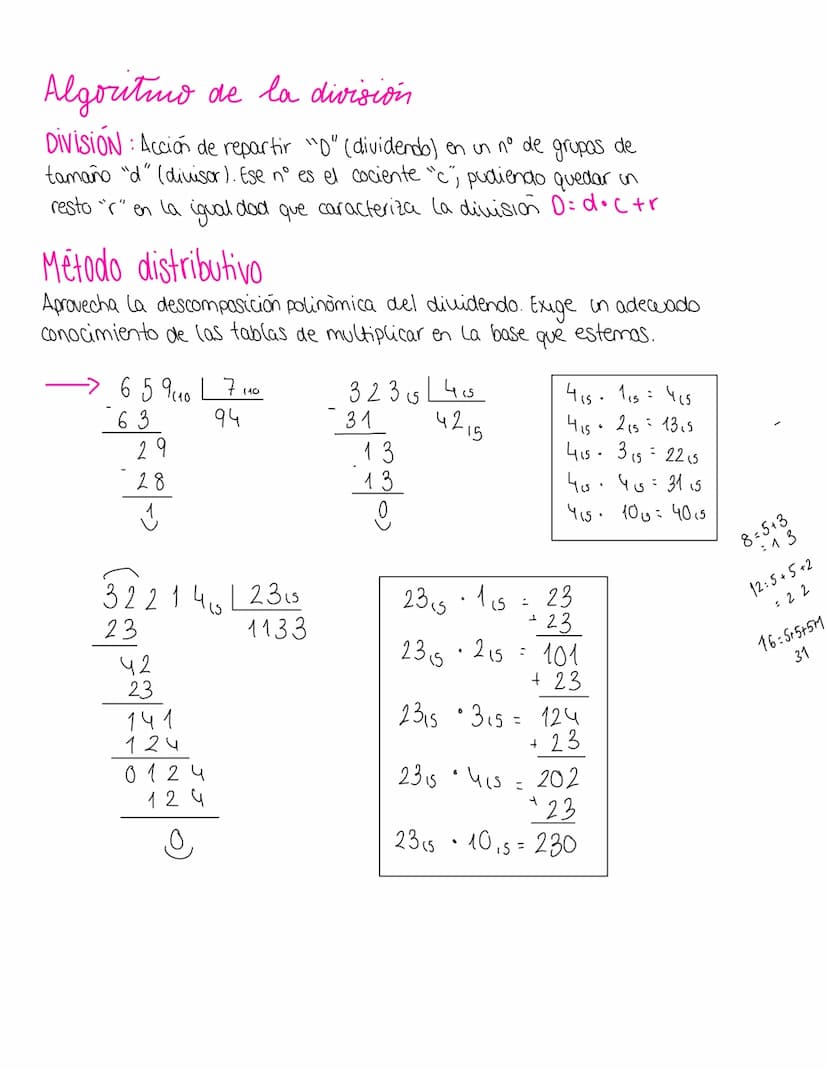 Algoritmo de la división
DIVISIÓN: Acción de repartir "D" (dividendo) en un nº de grupos de
tamaño "d" (divisor). Ese nº es el cociente "c", pudiendo quedar un
resto "r" en la igualdad que caracteriza la división D = d · c + r
Método distributivo
Aprovecha la descomposición polinómica del dividendo. Exige un adecuado
conocimiento de las tablas de multiplicar en la base que estemos.
→ 659(10 | 7(10
- 63 94
29
- 28
1
323(5 | 4(5
- 31 42(5
13
- 13
0
4(5 · 1(5 = 4(5
4(5 · 2(5 = 13(5
4(5 · 3(5 = 22(5
4(5 · 4(5 = 31(5
4(5 · 10(5 = 40(5
8=5+3
=13
12=5+5+2
=22
16=5+5+5+1
31
32214(5 | 23(5
23 1133
42
23
141
124
0124
124
0
23(5 · 1(5 = 23
+ 23
23(5 · 2(5 = 101
+ 23
23(5 · 3(5 = 124
+ 23
23(5 · 4(5 = 202
+ 23
23(5 · 10(5 = 230